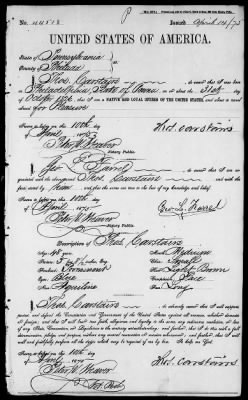 No. 44518 Issued April 14/75
State of Pennsylvania
County of Philada
I, Thos. Carstairs do swear that I was born in
Philadelphia State of Penna on or about the 31st day of
October that I am a NATIVE AND LOYAL CITIZEN OF THE UNITED STATES, and about to travel
abroad
for Pleasure
Sworn to before me this 10th
day of April 1875
Thos. Carstairs
Peter W. Weaver
Notary Public.
I, Geo. L. Farrel do swear that I am acquainted
with the above named Thos Carstairs
Sworn to before me this 10th
day of April 1875
Geo. L. Farrel
Peter W. Weaver
Notary Public.
Description of Thos. Carstairs
Age: 48 years Mouth: Medium
Stature: 5 Chin: Small
Forehead: Prominent Hair: Light Brown
Eyes: Blue Complexion:
Nose: Aquiline Face: Long
I, Thos Carstairs do solemnly swear that I will support,
protect, and defend the Constitution and Government of the United States against all enemies, whether domestic
or foreign; and that I will bear true faith, allegiance and loyalty to the same, any ordinance, resolution, or law
of any State, Convention or Legislature to the contrary notwithstanding; and further, that I do this with a full
determination, pledge and purpose, without any mental reservation or evasion whatsoever; and further, that I will
well and faithfully perform all the duties which may be required of me by law. So help me God.
Sworn to before me this 10th
day of April 1875
Thos. Carstairs
Peter W. Weaver
Not. Pub.